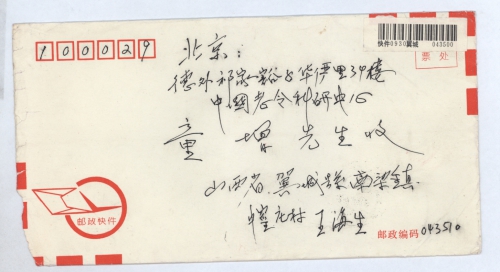 100029
北京:
快件0930翼城 043500
票处
德外祁家豁子华伊里39楼
中国老令科研中心
童增先生收
山西省翼城縣南梁鎮
村王海生
邮政快件
邮政编码 043510